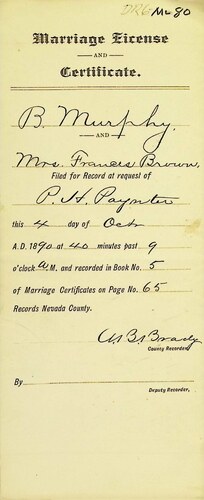 Mc 80
Marriage License
AND
Certificate.
B. Murphy.
AND
Mrs. Frances Brown,
Filed for Record at request of
P. H. Paynter
this 4 day of Octr
A.D. 1890 at 40 minutes past 9
o'clock A.M, and recorded in Book No. 5
of Marriage Certificates on Page No. 65
Records Nevada County.
Brady
County Recorder.
By
Deputy Recorder.